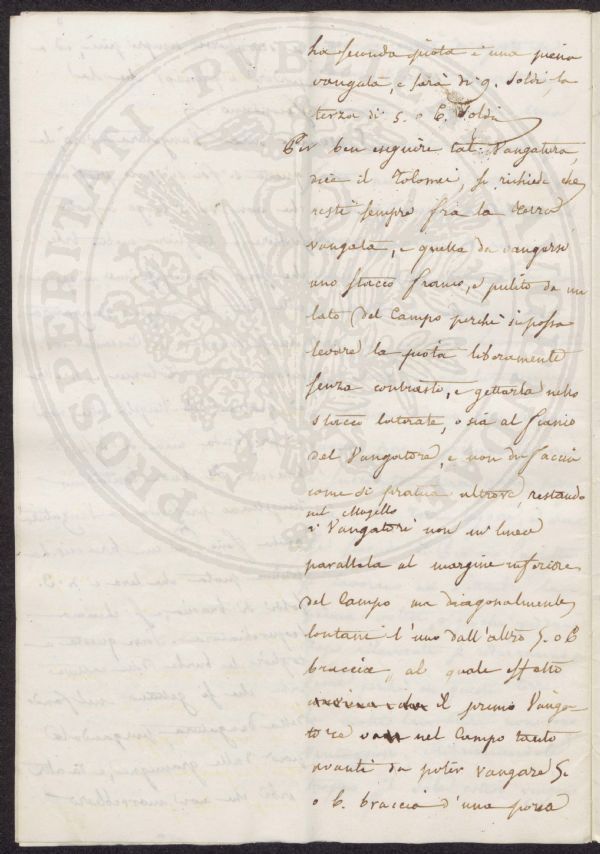 la seconda puota è una piena
vangata, e sarà di 9. soldi, la
terza di 5. o 6. soldi
Per ben eseguire tal Vangatura,
dice il Tolomei, si richiede che
resti sempre fra la terra
vangata, e quella da vangarsi
uno stacco franco, e pulito da un
lato del Campo perchè si possa
levare la puota liberamente
senza contrasto, e gettarla nello
stacco laterale, o sia al fianco
del Vangatore, e non in faccia
come si pratica altrove, restando
nel Mugello
i Vangatori non in linea
parallela al margine inferiore
del Campo ma diagonalmente
lontani l'uno dall'altro 5. o 6
braccia, al quale effetto
il primo Vanga-
tore nel Campo tanto
avanti da poter vangare 5.
o 6. braccia d'una porca
PROSPERITATI PVBLICAE AVGENDAE